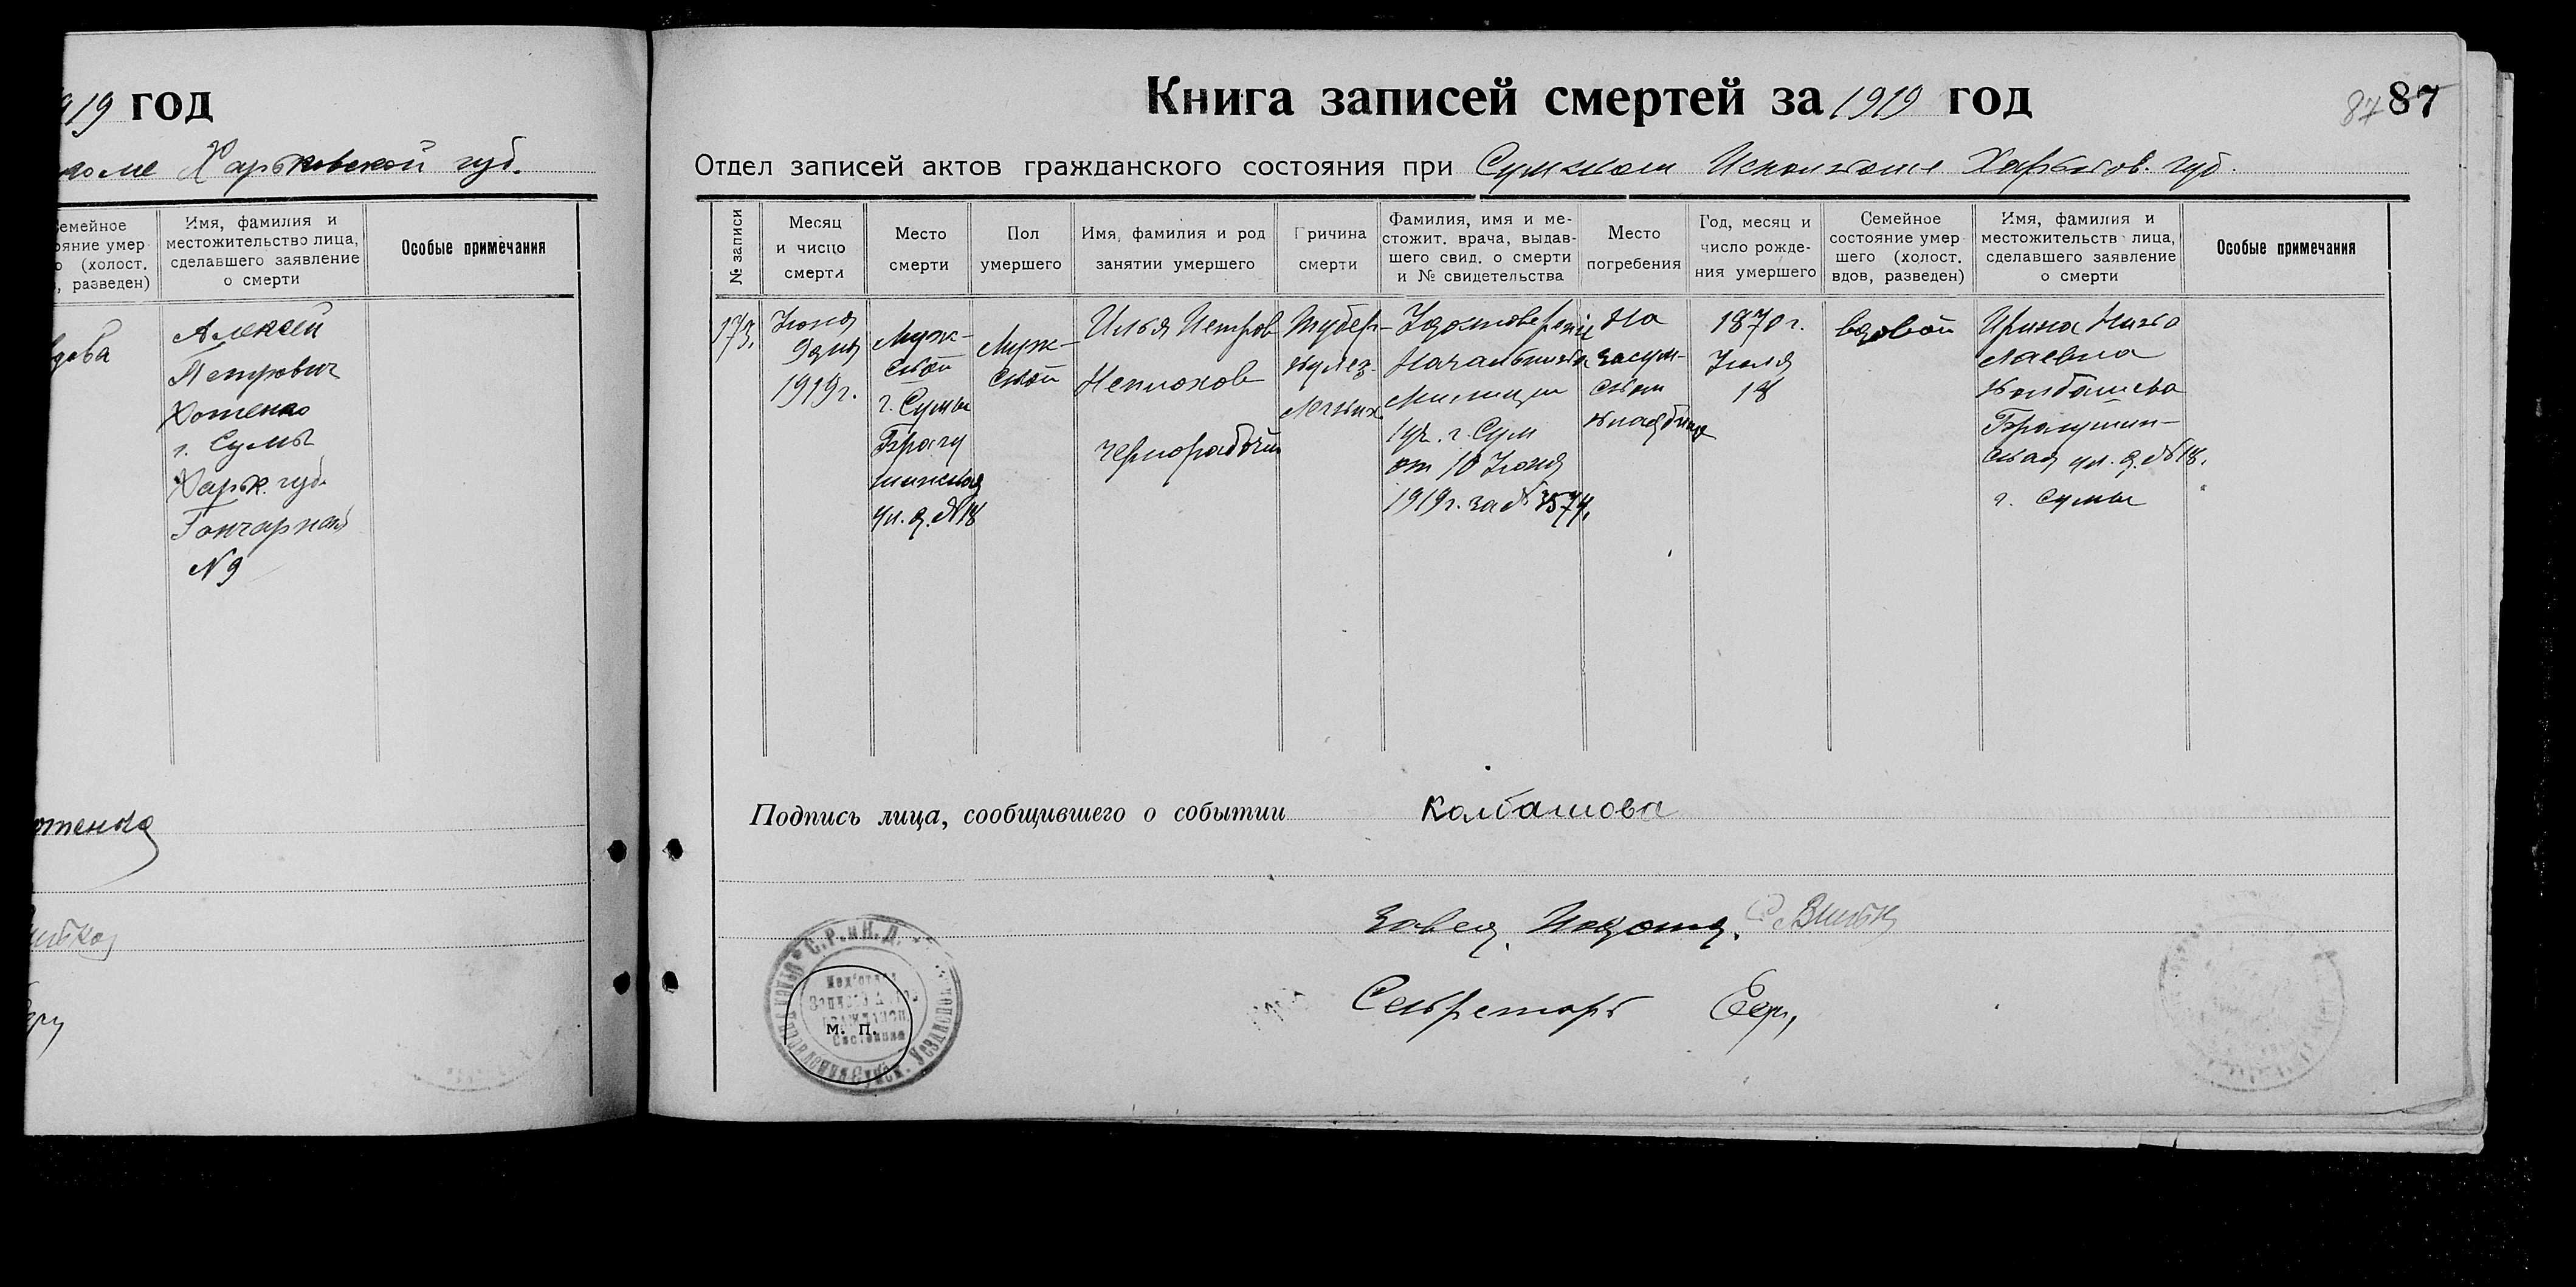 919 год
Харьковской губ.
Семейное
ояние умер
о (холост.
, разведен)
Имя, фамилия и
местожительство лица,
сделавшего заявление
о смерти
Особые примечания
вдова
Алексей
Петрович
Хотенко
г. Сумы
Харьк. губ.
Гончарная
N 9
отенко
Книга записей смертей за 1919 год
87 87
Отдел записей актов гражданского состояния при Сумском Исполкоме Харьков. губ.
№ записи
Месяц
и число
смерти
Место
смерти
Пол
умершего
Имя, фамилия и род
занятии умершего
Причина
смерти
Фамилия, имя и ме-
стожит. врача, выдав-
шего свид. о смерти
и № свидетельства
Место
погребения
Год, месяц и
число рожде-
ния умершего
Семейное
состояние умер
шего (холост.
вдов, разведен)
Имя, фамилия и
местожительств лица,
сделавшего заявление
о смерти
Особые примечания
173.
Июня
9 дня
1919 г.
Муж-
ской
г. Сумы
Брагу
шинская
ул. д. №18
Муж-
ской
Илья Петров
Неплохов
чернорабочий
Тубер-
кулез
легких
Удостоверение
Начальника
Милиции
1 уч. г. Сум
от 10 Июня
1919 г. за № 3574,
На
засум-
ском
кладбище
1870 г.
Июля
18
вдовой
Ирина Нико
лаевна
Колбашева
Брагушин-
ская ул. д. №18.
г. Сумы
Подпись лица, сообщившего о событии Колбашова
Завед. Подотд.
Секретарь
С.Р. и К.Д.
Записи
Состояния
м. п.